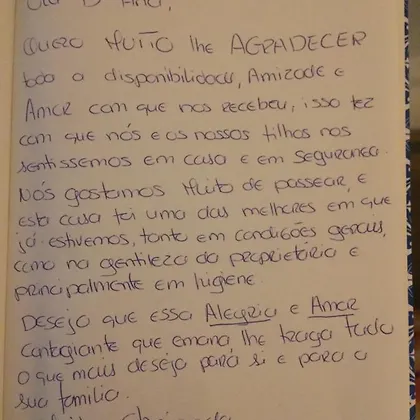 Olá D. Ana,
Quero Muito lhe AGRADECER
toda a disponibilidade, Amizade e
Amor com que nos recebeu, isso fez
com que nós e os nossos filhos nos
sentissemos em casa e em segurança.
Nós gostamos Muito de passear, e
esta casa foi uma das melhores em que
já estivemos, tanto em condições gerais,
como na gentileza do proprietário e
principalmente em higiene.
Desejo que essa Alegria e Amor
contagiante que emana lhe traga tudo
o que mais deseja para si e para a
sua familia.